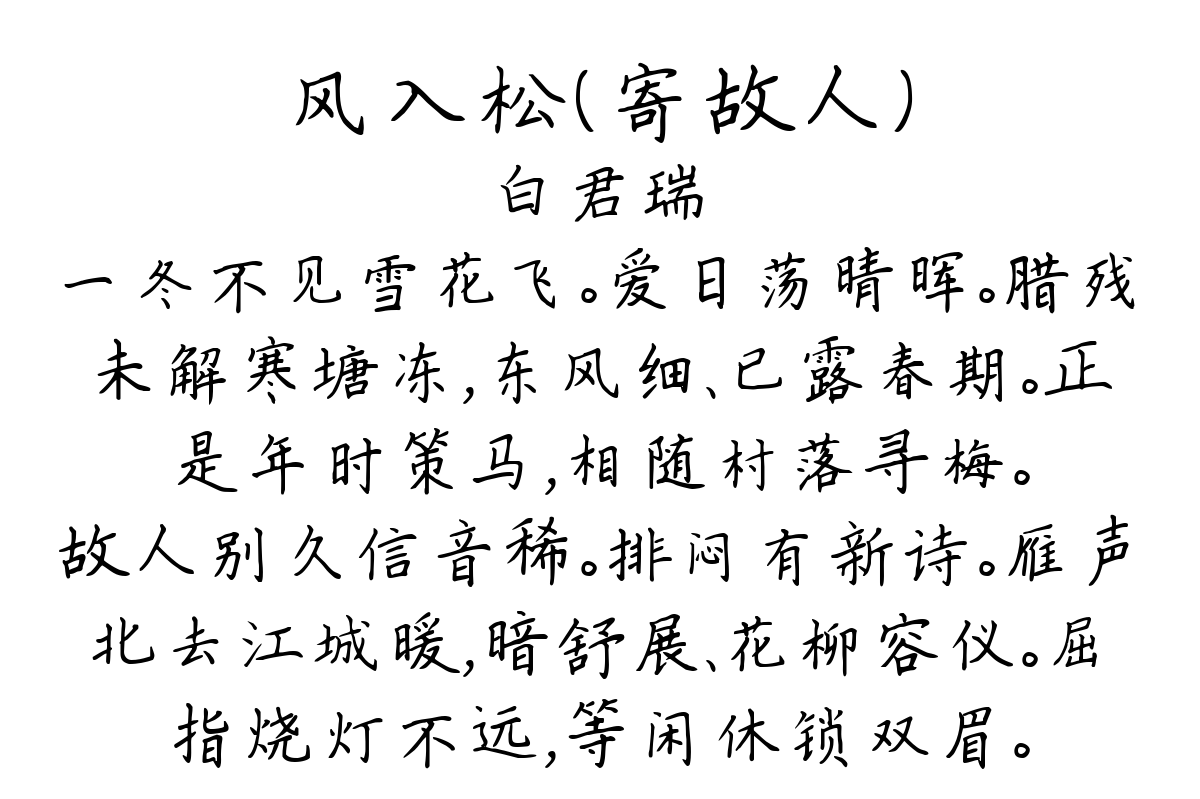 风入松(寄故人)
白君瑞
一冬不见雪花飞。爱日荡晴晖。腊残
未解寒塘冻,东风细、已露春期。正
是年时策马,相随村落寻梅。
故人别久信音稀。排闷有新诗。雁声
北去江城暖,暗舒展、花柳容仪。屈
指烧灯不远,等闲休锁双眉。